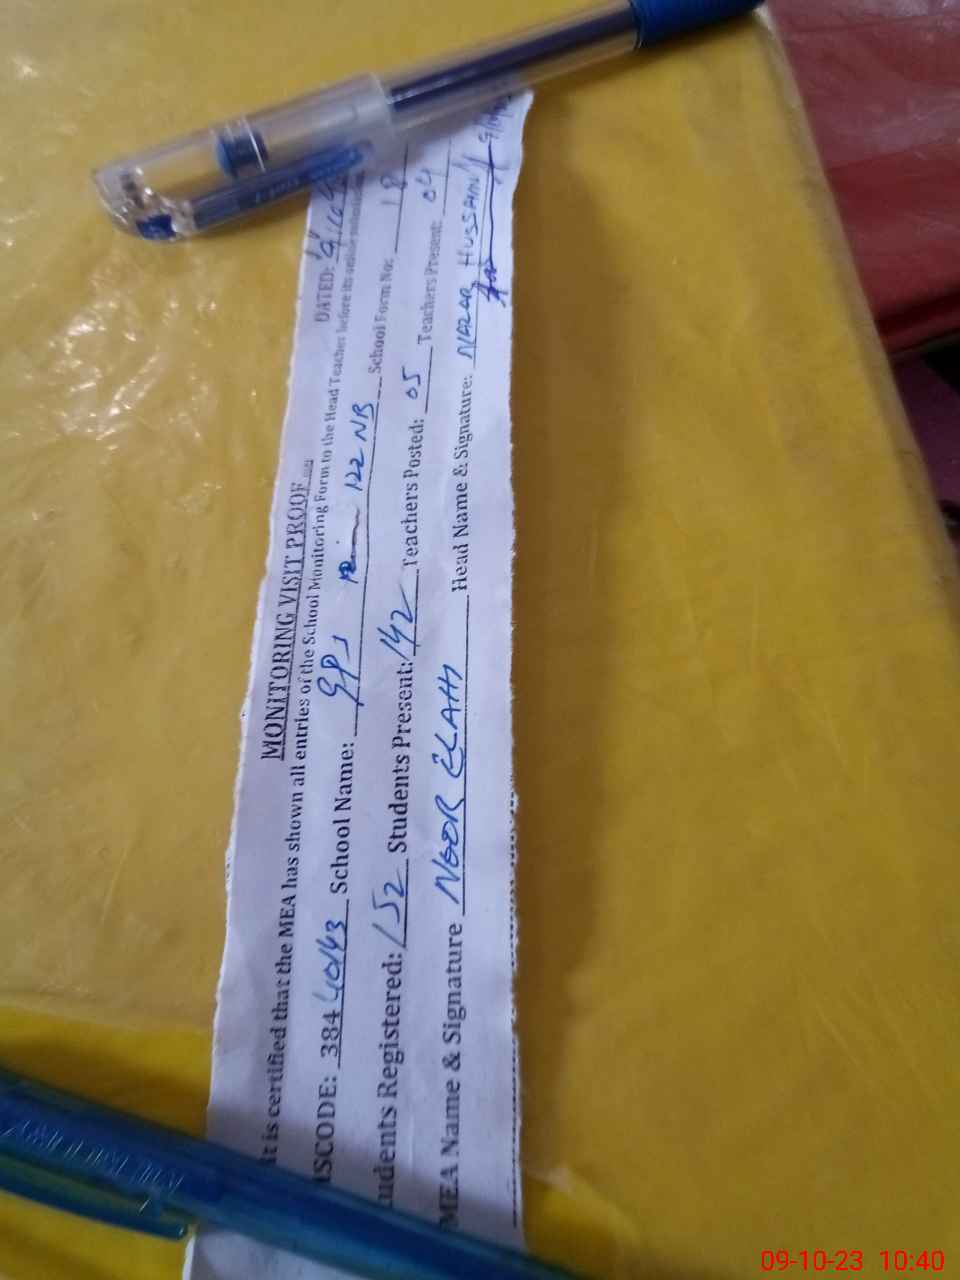 MONITORING VISIT PROOF
DATED:
it is certified that the MEA has shown all entries of the School Monitoring Form to the Head Teacher before its online
ISCODE: 38440143 School Name: GPS 122 NB School Form No: 18
udents Registered: 152 Students Present: 142 Teachers Posted: 05 Teachers Present: 04
MEA Name & Signature NOOR ELAHI Head Name & Signature: NAZAR HUSSAIN
09-10-23 10:40